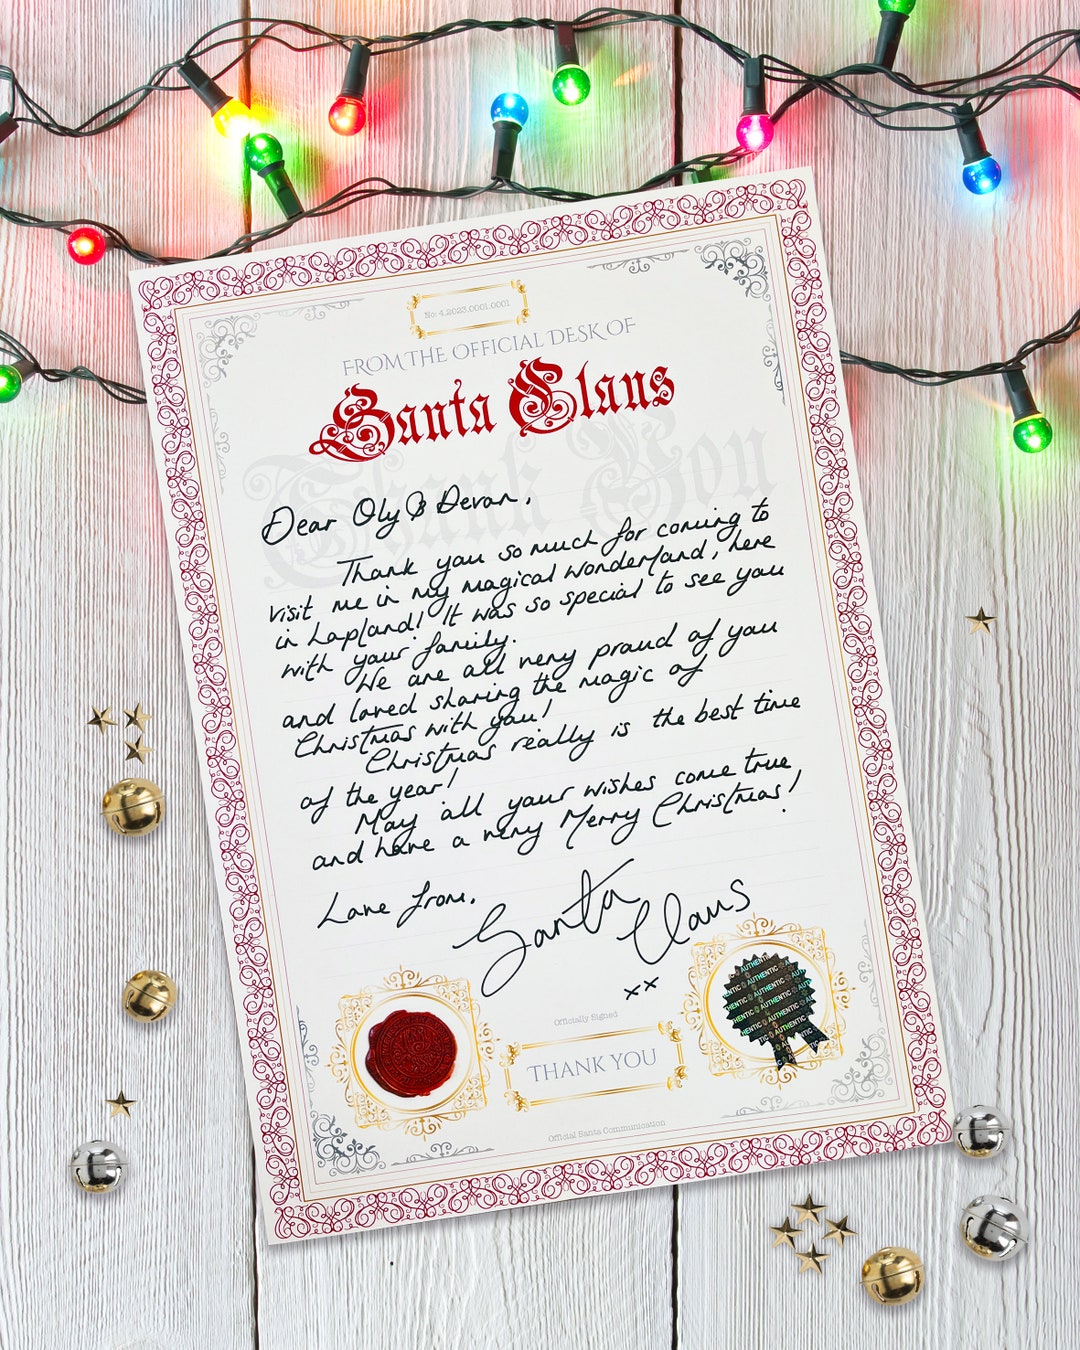 No: 4.2023.0001.0001
FROM THE OFFICIAL DESK OF
Santa Claus
Thank You
Dear Oly & Devan,
Thank you so much for coming to
visit me in my magical wonderland, here
in Lapland! It was so special to see you
with your family.
We are all very proud of you
and loved sharing the magic of
Christmas with you!
Christmas really is the best time
of the year!
May all your wishes come true
and have a very Merry Christmas!
Love from,
Santa
Claus
xx
Officially Signed
THANK YOU
Official Santa Communication
AUTHENTIC